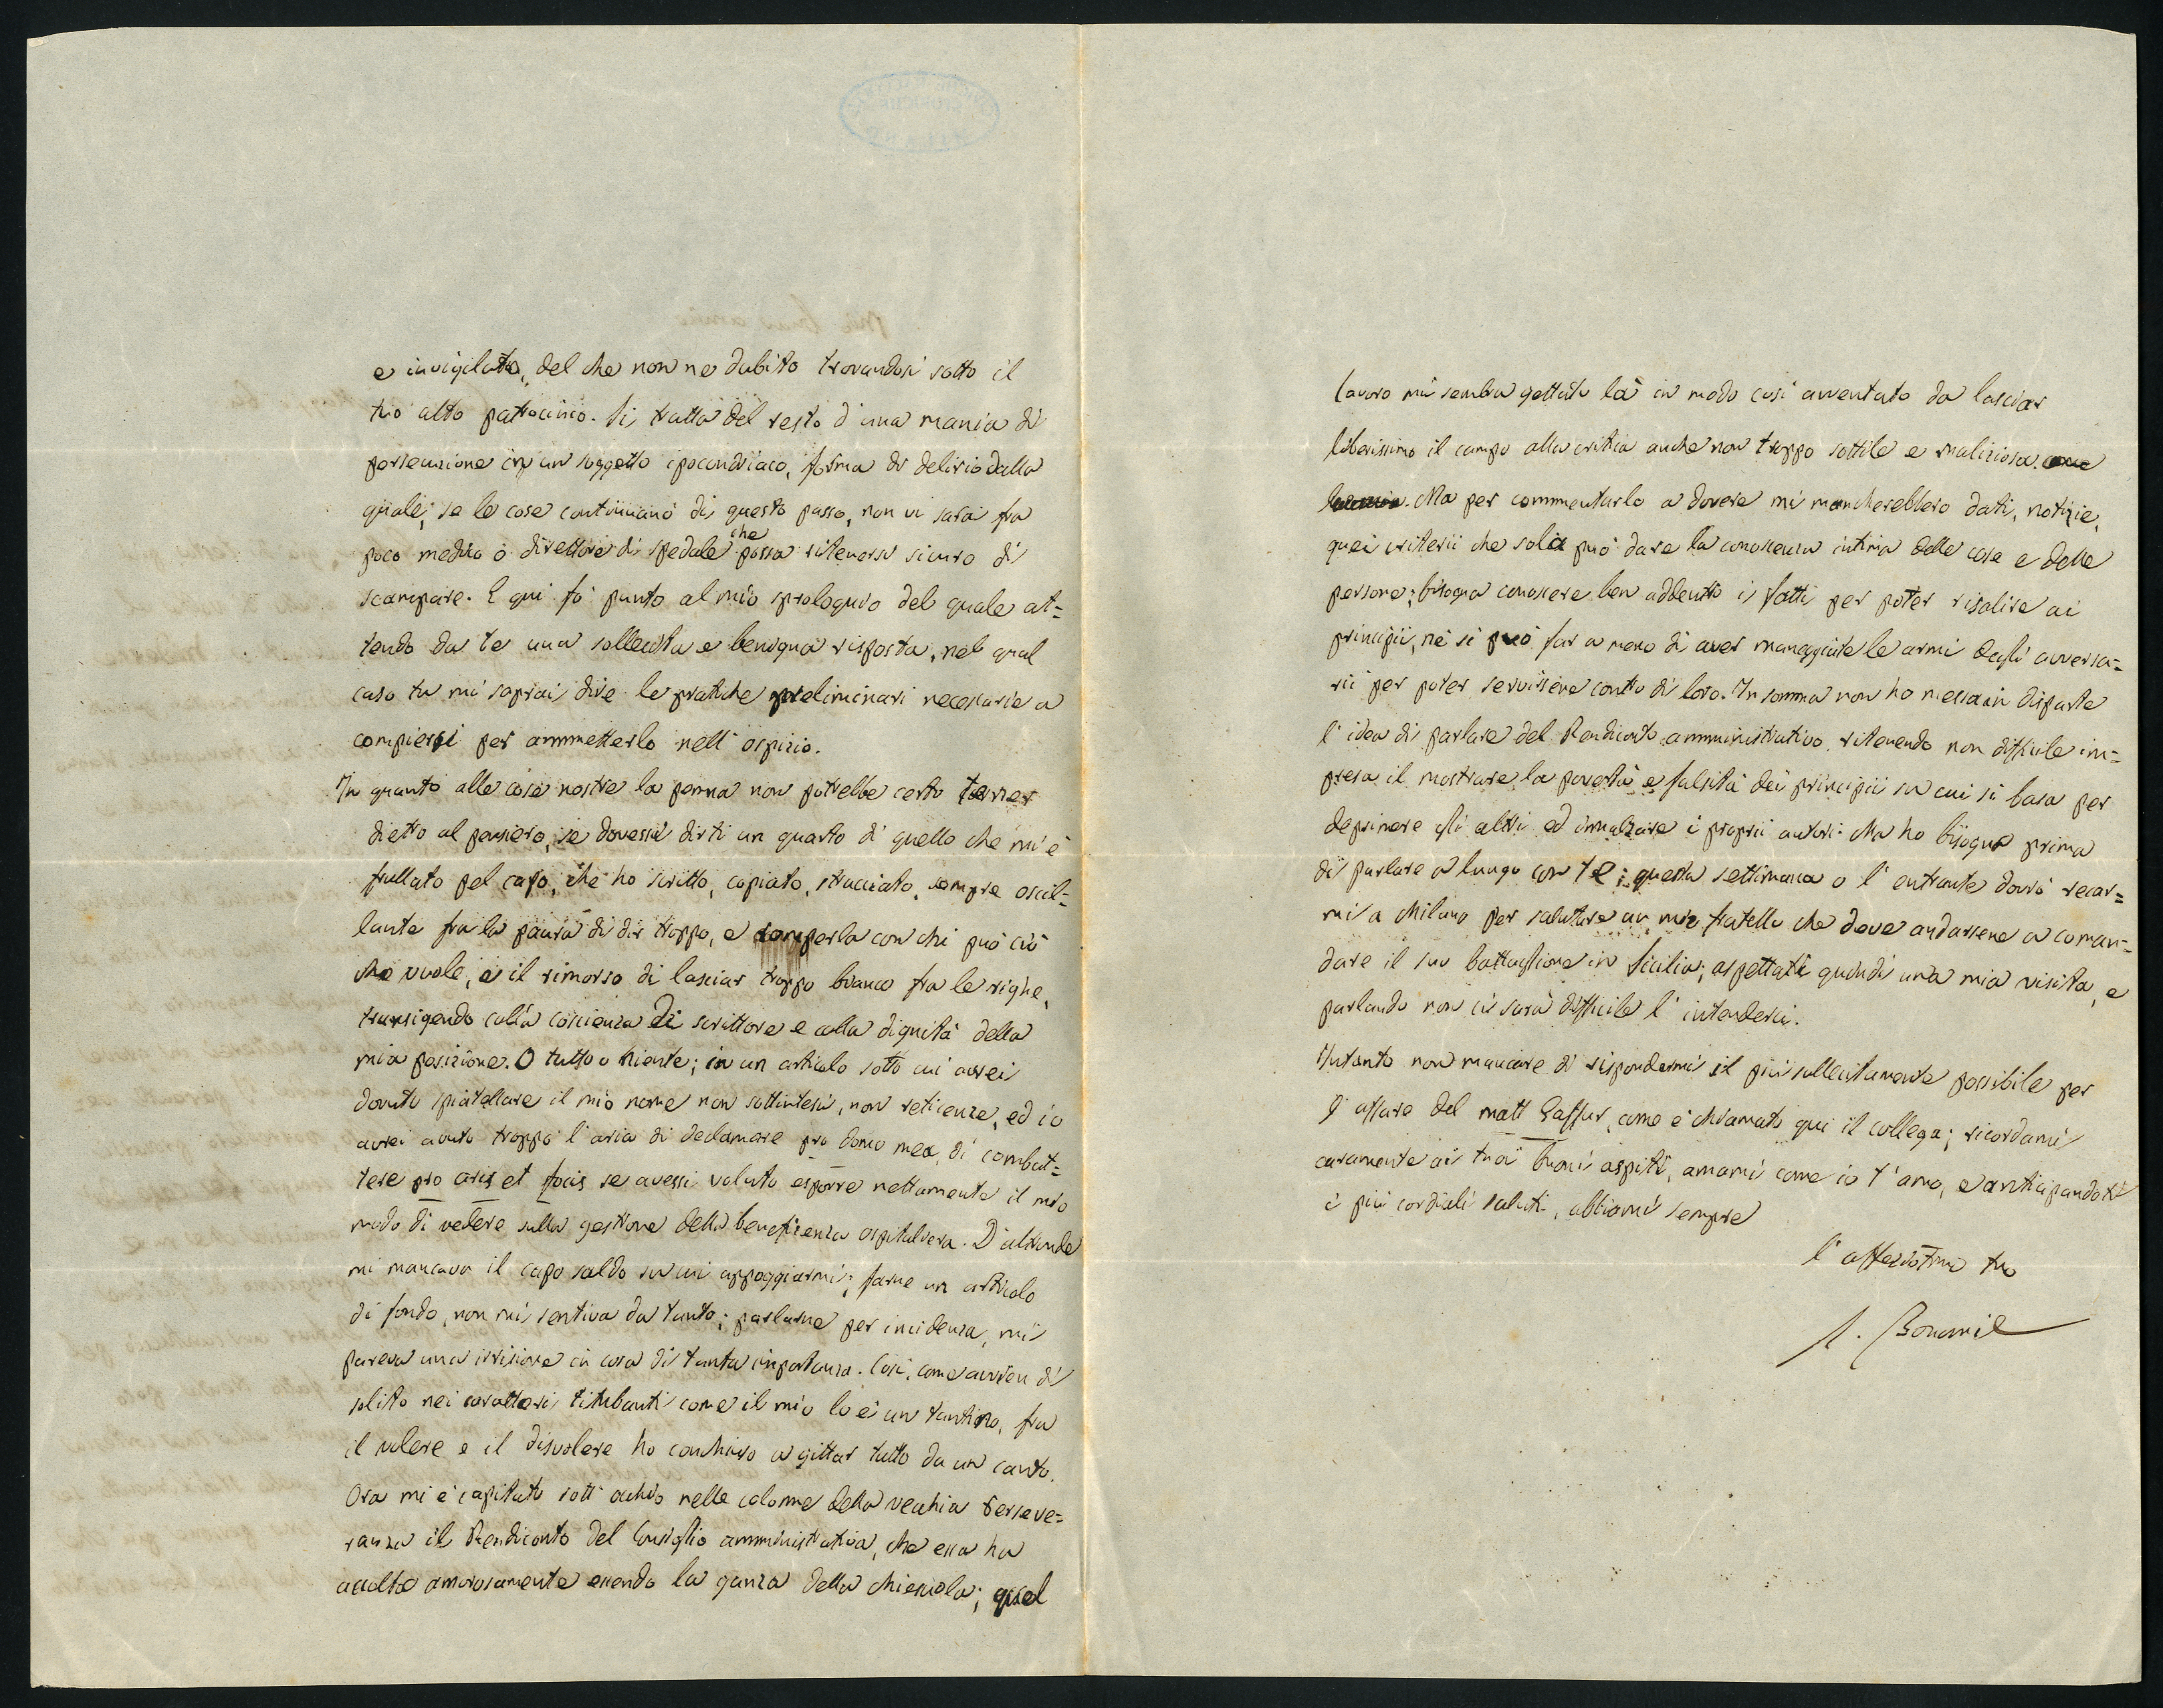 e invigilato, del che non ne dubito trovandosi sotto il
tuo alto patrocinio. Si tratta del resto d'una mania di
persecuzione in un soggetto ipocondriaco, forma di delirio dalla
quale, se le cose continuano di questo passo, non vi sarà fra
poco medico o direttore di spedale che possa ritenersi sicuro di
scampare. E qui fo punto al mio sproloquio del quale at=
tendo da te una sollecita e benigna risposta, nel qual
caso tu mi saprai dire le pratiche preliminari necessarie a
compiersi per ammetterlo nell'ospizio.
In quanto alle cose nostre la penna non potrebbe certo tener
dietro al pensiero, se dovessi dirti un quarto di quello che mi è
frullato pel capo, che ho scritto, copiato, stracciato, sempre oscil=
lante fra la paura di dir troppo, e romperla con chi può ciò
che vuole, e il rimorso di lasciar troppo bianco fra le righe,
transigendo colla coscienza di scrittore e colla dignità della
mia posizione. O tutto o niente; in un articolo sotto cui avrei
dovuto spiattellare il mio nome non sottintesi, non reticenze, ed io
avrei avuto troppo l'aria di declamare pro domo mea, di combat=
tere pro aris et focis se avessi voluto esporre nettamente il mio
modo di vedere sulla gestione della beneficenza ospitaliera. D'altronde
mi mancava il capo saldo su cui appoggiarmi; farne un articolo
di fondo, non mi sentiva da tanto; parlarne per incidenza, mi
pareva una irrisione in cosa di tanta importanza. Così, come avvien di
solito nei caratteri titubanti come il mio lo è un tantino, fra
il volere e il disvolere ho conchiuso a gittar tutto da un canto.
Ora mi è capitato sott'occhio nelle colonne della vecchia Perseve=
ranza il Rendiconto del Consiglio amministrativo, che essa ha
accolto amorosamente essendo la ganza della chiesuola; quel
lavoro mi sembra gettato là in modo così avventato da lasciar
liberissimo il campo alla critica anche non troppo sottile e maliziosa.
Ma per commentarlo a dovere mi mancherebbero dati, notizie,
quei criterii che sola può dare la conoscenza intima delle cose e delle
persone; bisogna conoscere ben addentro i fatti per poter risalire ai
principii, nè si può far a meno di aver maneggiate le armi degli avversa=
rii per poter servirsene contro di loro. In somma non ho messa in disparte
l'idea di parlare del Rendiconto amministrativo, ritenendo non difficile im=
presa il mostrare la povertà e falsità dei principii su cui si basa per
deprimere gli altri ed innalzare i proprii autori. Ma ho bisogno prima
di parlare a lungo con te; questa settimana o l'entrante dovrò recar=
mi a Milano per salutare un mio fratello che deve andarsene a coman=
dare il suo battaglione in Sicilia; aspettati quindi una mia visita, e
parlando non ci sarà difficile l'intenderci.
Intanto non mancare di rispondermi il più sollecitamente possibile per
l'affare del matt Gaffur, come è chiamato qui il collega; ricordami
caramente ai tuoi buoni ospiti, amami come io t'amo, e anticipandoti
i più cordiali saluti, abbiami sempre
l'affeziotmo tuo
S. Bonomi